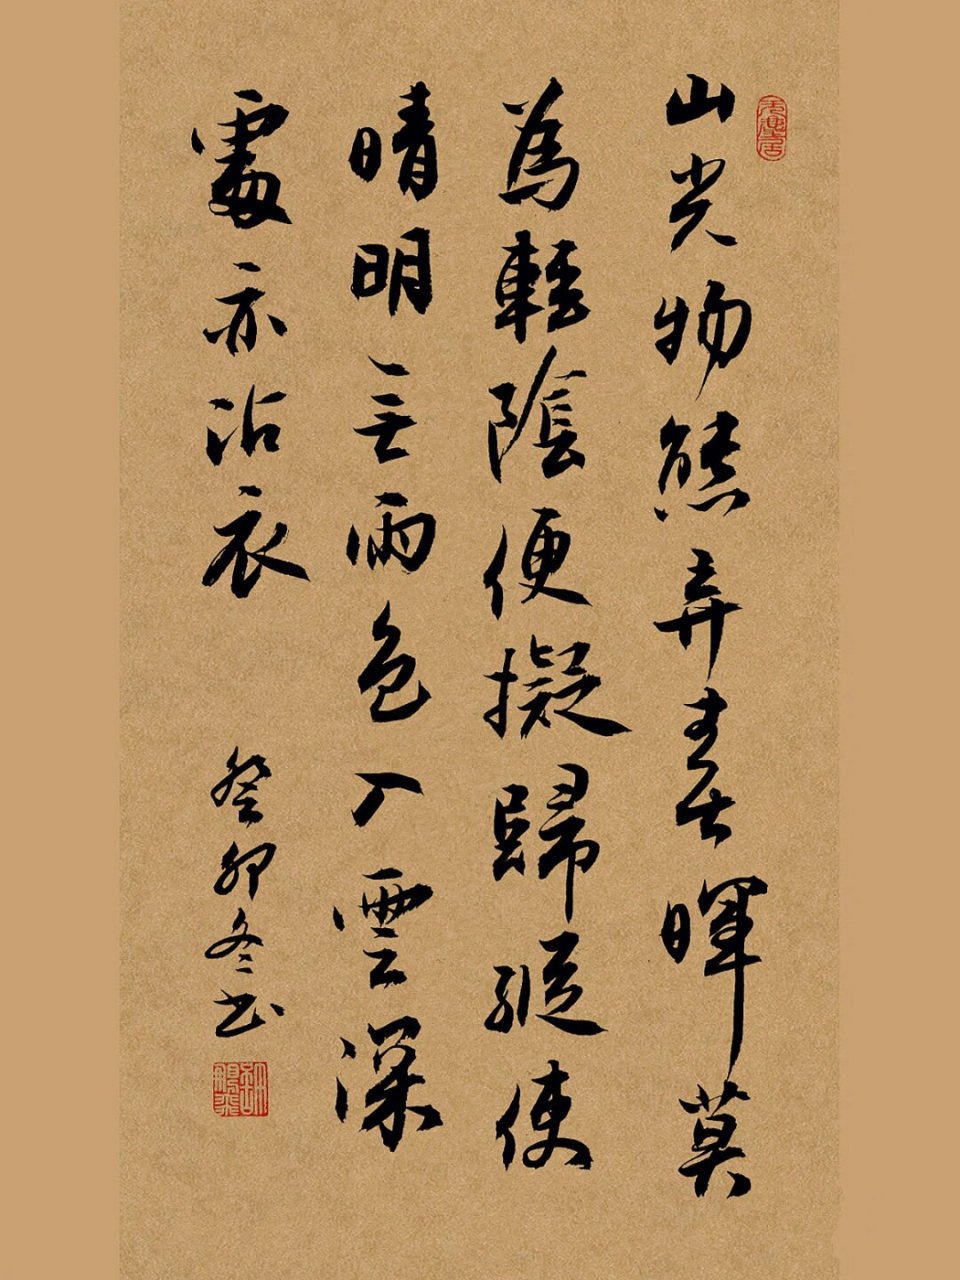 山光物態弄春暉莫
為輕陰便擬歸縱使
晴明無雨色入雲深
處亦沾衣
癸卯冬書